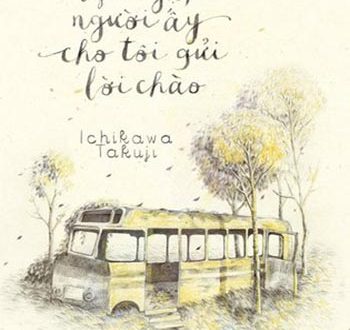 người ấy
cho tôi gửi
lời chào
Ichikawa
Takuji